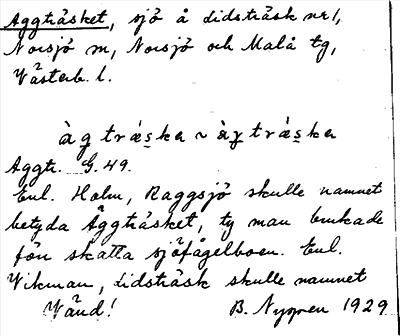 Aggträsket, sjö å Lidsträsk nr 1,
Norsjö sn, Norsjö och Malå tg,
Västerb. l.
àg träs̱ka ~ àg träs̱ka
Aggtr. G. 49.
Enl. Holm, Raggsjö skulle namnet
betyda Äggträsket, ty man brukade
förr skatta sjöfågelboen. Enl.
Wikman, Lidsträsk skulle namnet
Vänd! B. Nygren 1929